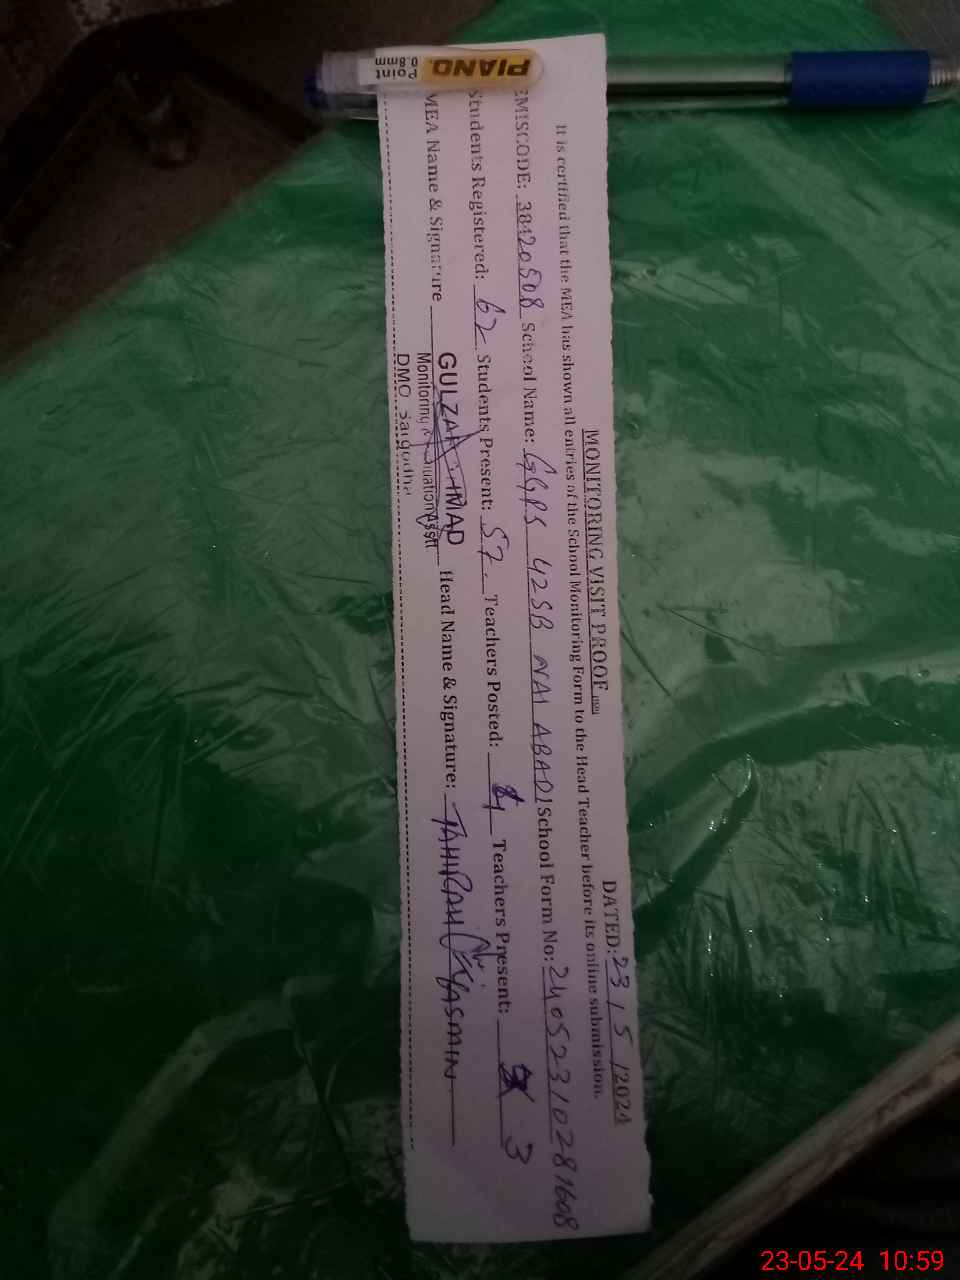 MONITORING VISIT PROOF
DATED: 23 / 5 /2024
It is certified that the MEA has shown all entries of the School Monitoring Form to the Head Teacher before its online submission.
EMISCODE: 38420508 School Name: GGPS 42SB NAI ABADI School Form No: 24052310281608
Students Registered: 62 Students Present: 57 Teachers Posted: 4 Teachers Present: 3
MEA Name & Signature GULZAR AHMAD Head Name & Signature: TAHIRAH YASMIN
Monitoring & Evaluation Asstt
DMO Sargodha
PIANO
Point
0.8mm
23-05-24 10:59